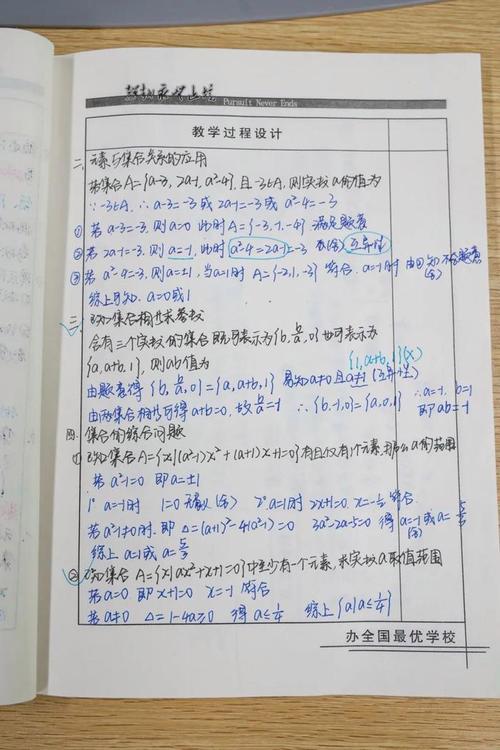 Pursuit Never Ends
教学过程设计
二、元素与集合关系的应用
若集合A={a-3, 2a-1, a²-4}, 且-3∈A, 则实数a的值为
∵-3∈A, ∴a-3=-3或2a-1=-3或a²-4=-3
① 若a-3=-3, 则a=0 此时A={-3,-1,-4} 满足题意
② 若2a-1=-3, 则a=-1, 此时 a²-4=2a-1=-3 (舍) 互异性
③ 若a²-4=-3, 则a=±1, 当a=1时 A={-2,1,-3} 符合. a=-1时 由②知不合题意(舍)
综上可知. a=0或1
三、已知集合相等求参数
含有三个实数的集合既可表示为{b, b/a, 0} 也可表示为
{a, a+b, 1}, 则ab值为
{1, a+b, 1}(×)
由题意得 {b, b/a, 0}={a, a+b, 1} 易知a≠0且a≠1 (互异性)
由两集合相等可得a+b=0, 故b/a=-1 ∴{b,-1,0}={a,0,1} ∴a=-1, b=1
即ab=-1
四、集合的综合问题
① 已知集合A={x|(a²-1)x²+(a+1)x+1=0}有且仅有1个元素, 求a的范围
若a²-1=0 即a=±1
1° a=-1时 1=0 无解(舍) 2° a=1时 2x+1=0. x=-1/2 符合
若a²-1≠0时. 即Δ=(a+1)²-4(a²-1)=0 3a²-2a-5=0 得a=-1(舍)或a=5/3
综上a=1或a=5/3
② 已知集合A={x|ax²+x+1=0}中至少有一个元素, 求实数a取值范围
若a=0 即x+1=0 x=-1 符合
若a≠0 Δ=1-4a≥0 得a≤1/4 综上{a|a≤1/4}
办全国最优学校